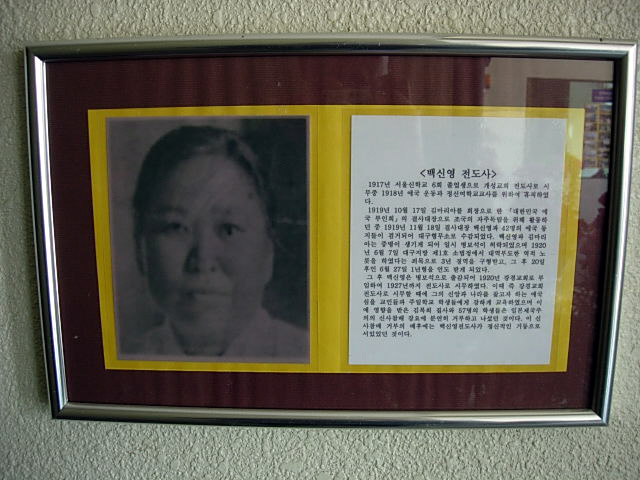 <백신영 전도사>
1917년 서울신학교 6회 졸업생으로 개성교의 전도사로 시
무중 1918년 애국 운동과 정신여학교교사를 위하여 휴직하였
다.
1919년 10월 17일 김마리아를 회장으로 한 「대한민국 애
국 부인회」의 결사대장으로 조국의 자주독립을 위해 활동하
던 중 1919년 11월 18일 결사대장 백신영과 42명의 애국 동
지들이 검거되어 대구형무소로 수감되었다. 백신영과 김마리
아는 중병이 생기게 되어 임시 병보석이 허락되었으며 1920
년 6월 7일 대구지방 제1호 소법정에서 대역부도한 역적 노
릇을 하였다는 죄목으로 3년 징역을 구형받고, 그 후 20일
후인 6월 27일 1년형을 언도 받게 되었다.
그 후 백신영은 병보석으로 출감되어 1920년 강경교회로 부
임하여 1927년까지 전도사로 시무하였다. 이때 즉 강경교회
전도사로 시무할 때에 그의 신앙과 나라를 팔고자 하는 애국
심을 교인들과 주일학교 학생들에게 강하게 교육하였으며 이
에 영향을 받은 김복희 집사와 57명의 학생들은 일본제국주
의의 신사참배 강요에 분연히 거부하고 나섰던 것이다. 이 신
사참배 거부의 배후에는 백신영전도사가 정신적인 거동으로
서있었던 것이다.